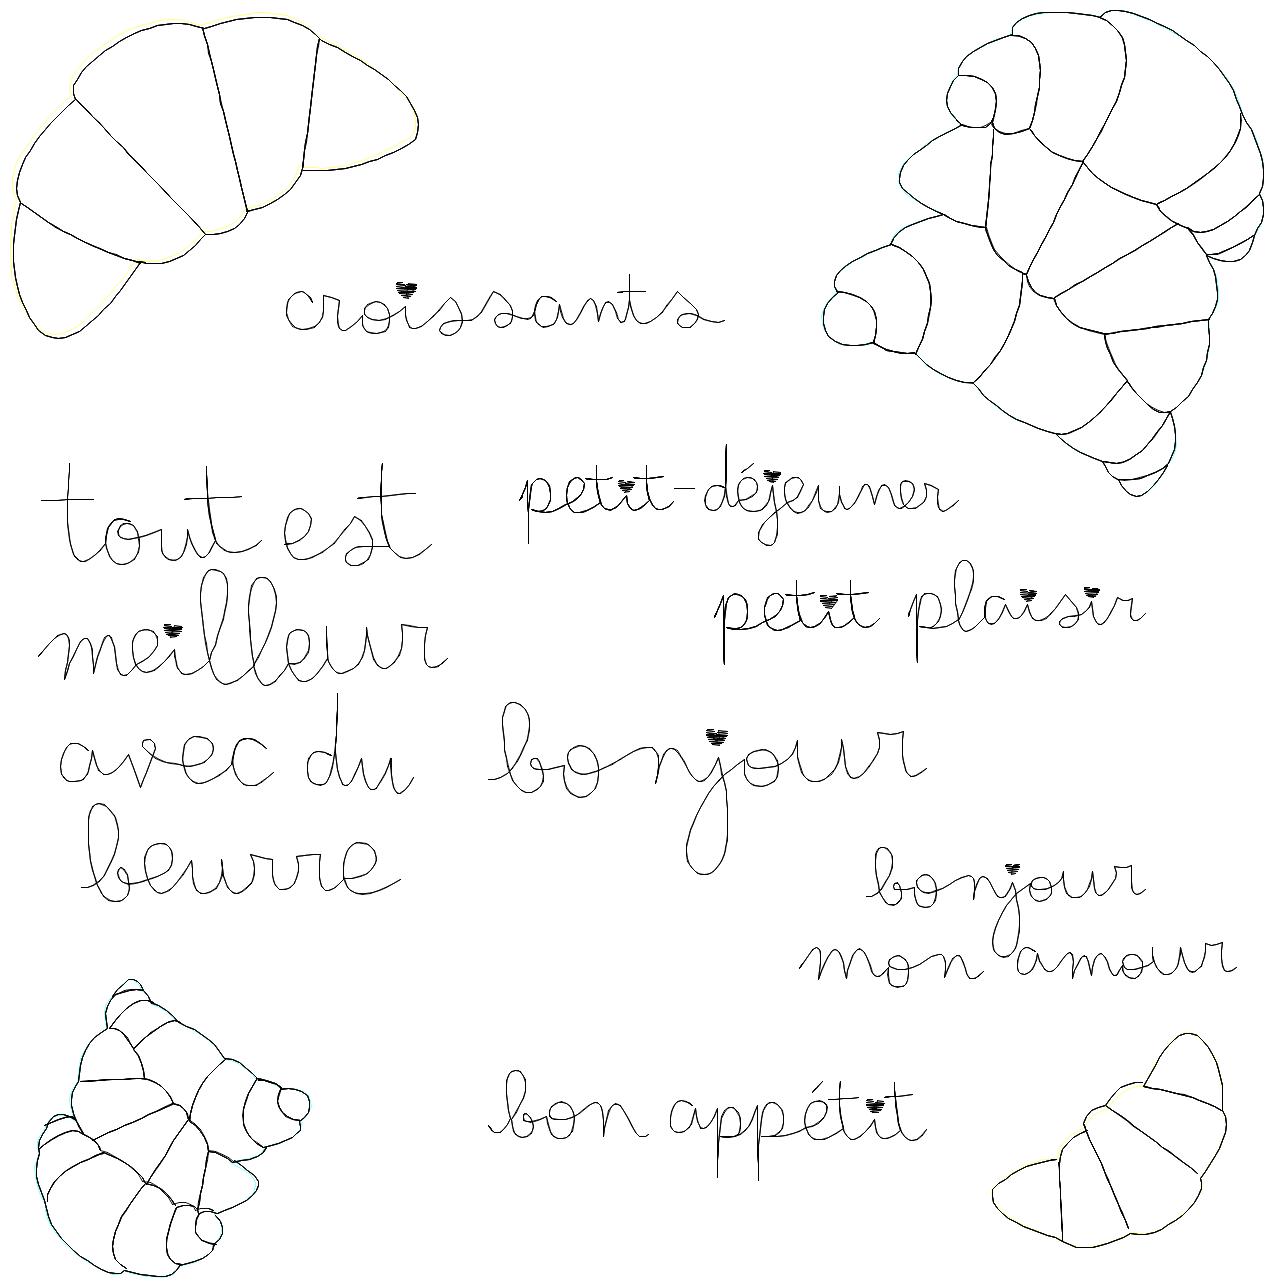 croissants
tout est
meilleur
avec du
beurre
petit-déjeuner
petit plaisir
bonjour
bonjour
mon amour
bon appétit